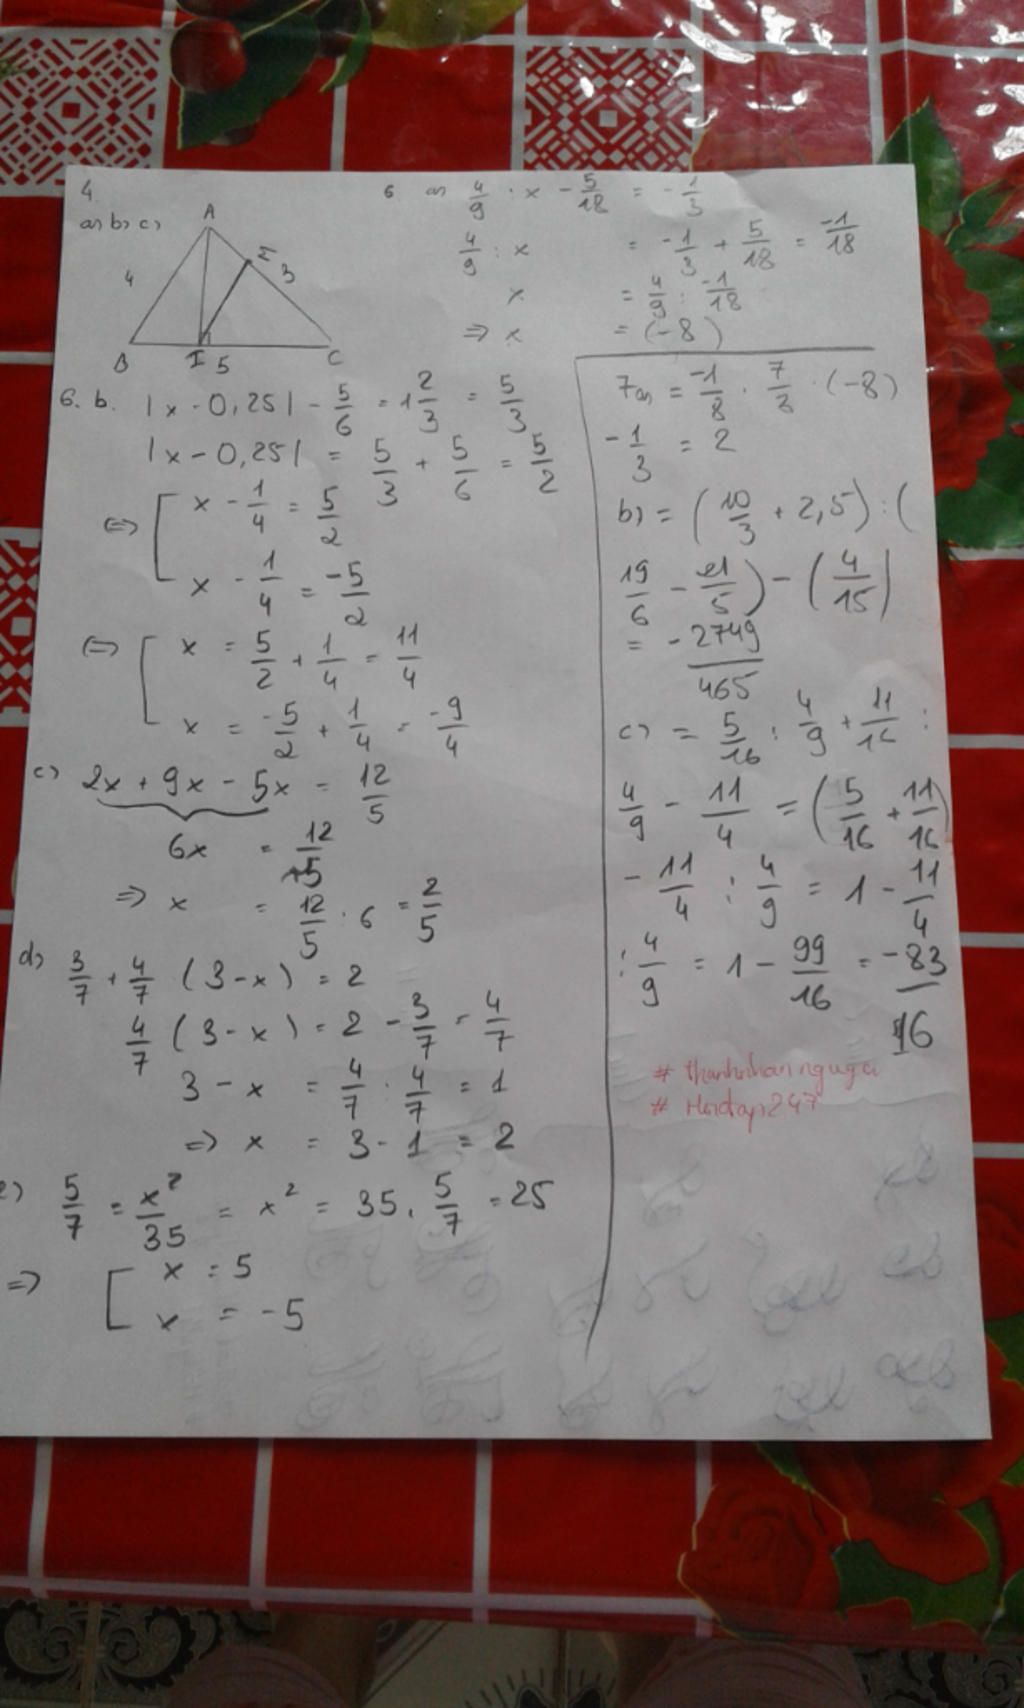 4.
a, b, c,
A
4
I
3
B
I
5
C
6. a, 4/9 : x - 5/18 = -1/3
4/9 : x = -1/3 + 5/18 = -1/18
x = 4/9 : -1/18
=> x = (-8)
6. b. |x - 0,25| - 5/6 = 1 2/3 = 5/3
|x - 0,25| = 5/3 + 5/6 = 5/2
<=> [ x - 1/4 = 5/2
x - 1/4 = -5/2
<=> [ x = 5/2 + 1/4 = 11/4
x = -5/2 + 1/4 = -9/4
c) 2x + 9x - 5x = 12/5
6x = 12/5
=> x = 12/5 : 6 = 2/5
d, 3/7 + 4/7 (3 - x) = 2
4/7 (3 - x) = 2 - 3/7 = 4/7
3 - x = 4/7 : 4/7 = 1
=> x = 3 - 1 = 2
e) 5/7 = x²/35 = x² = 35 . 5/7 = 25
=> [ x = 5
x = -5
7a, = -1/8 . 7/3 . (-8)
-1/3 = 2
b) = (10/3 + 2,5) : (
19/6 - 21/5) - (4/15)
= -2749/465
c) = 5/16 : 4/9 + 11/16 :
4/9 - 11/4 = (5/16 + 11/16)
- 11/4 : 4/9 = 1 - 11/4
: 4/9 = 1 - 99/16 = -83/16
# thanhnhannguyen
# Hoidap247